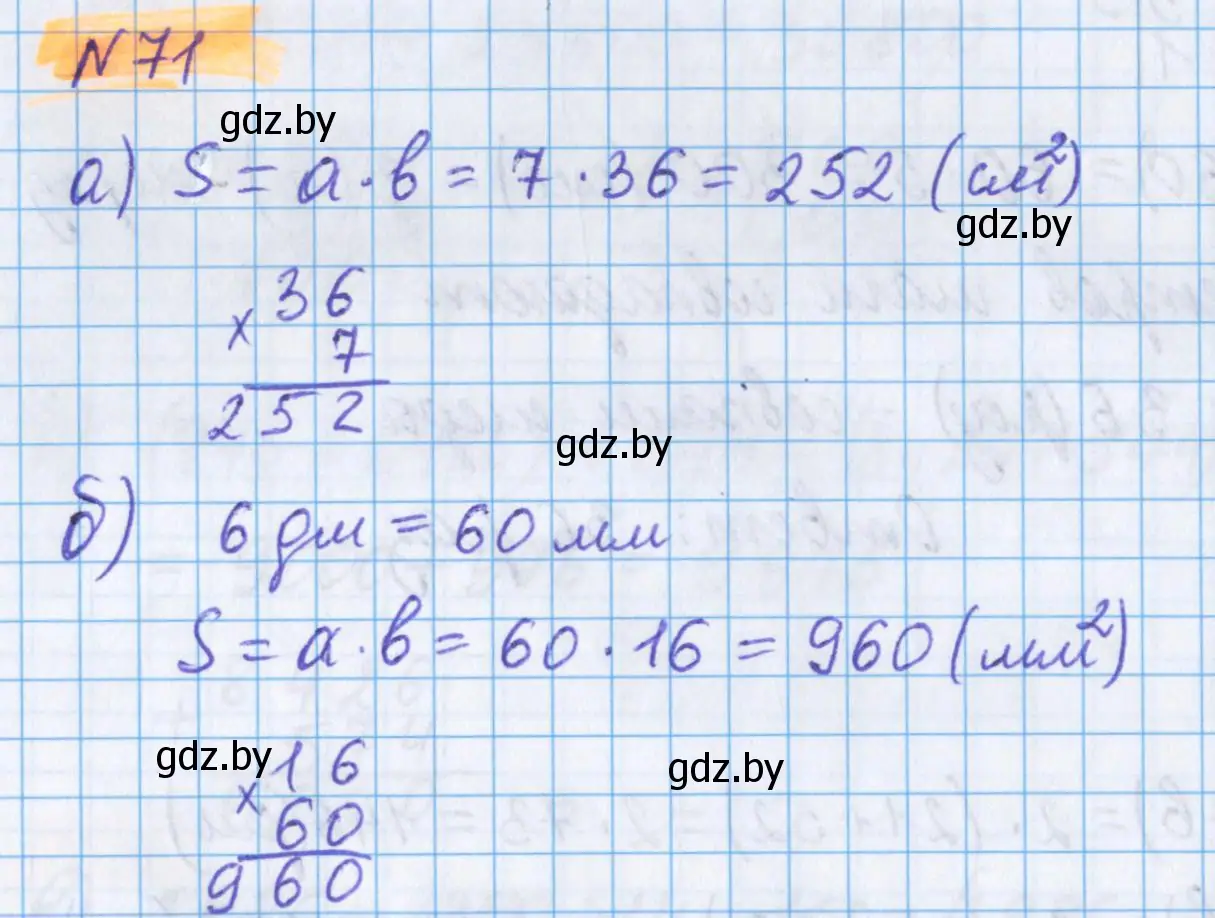 N 71
gdz.by
а) S = a · b = 7 · 36 = 252 (см²)
gdz.by
36
× 7
252
gdz.by
б) 6 дм = 60 мм
S = a · b = 60 · 16 = 960 (мм²)
gdz.by
16
gdz.by
× 60
960